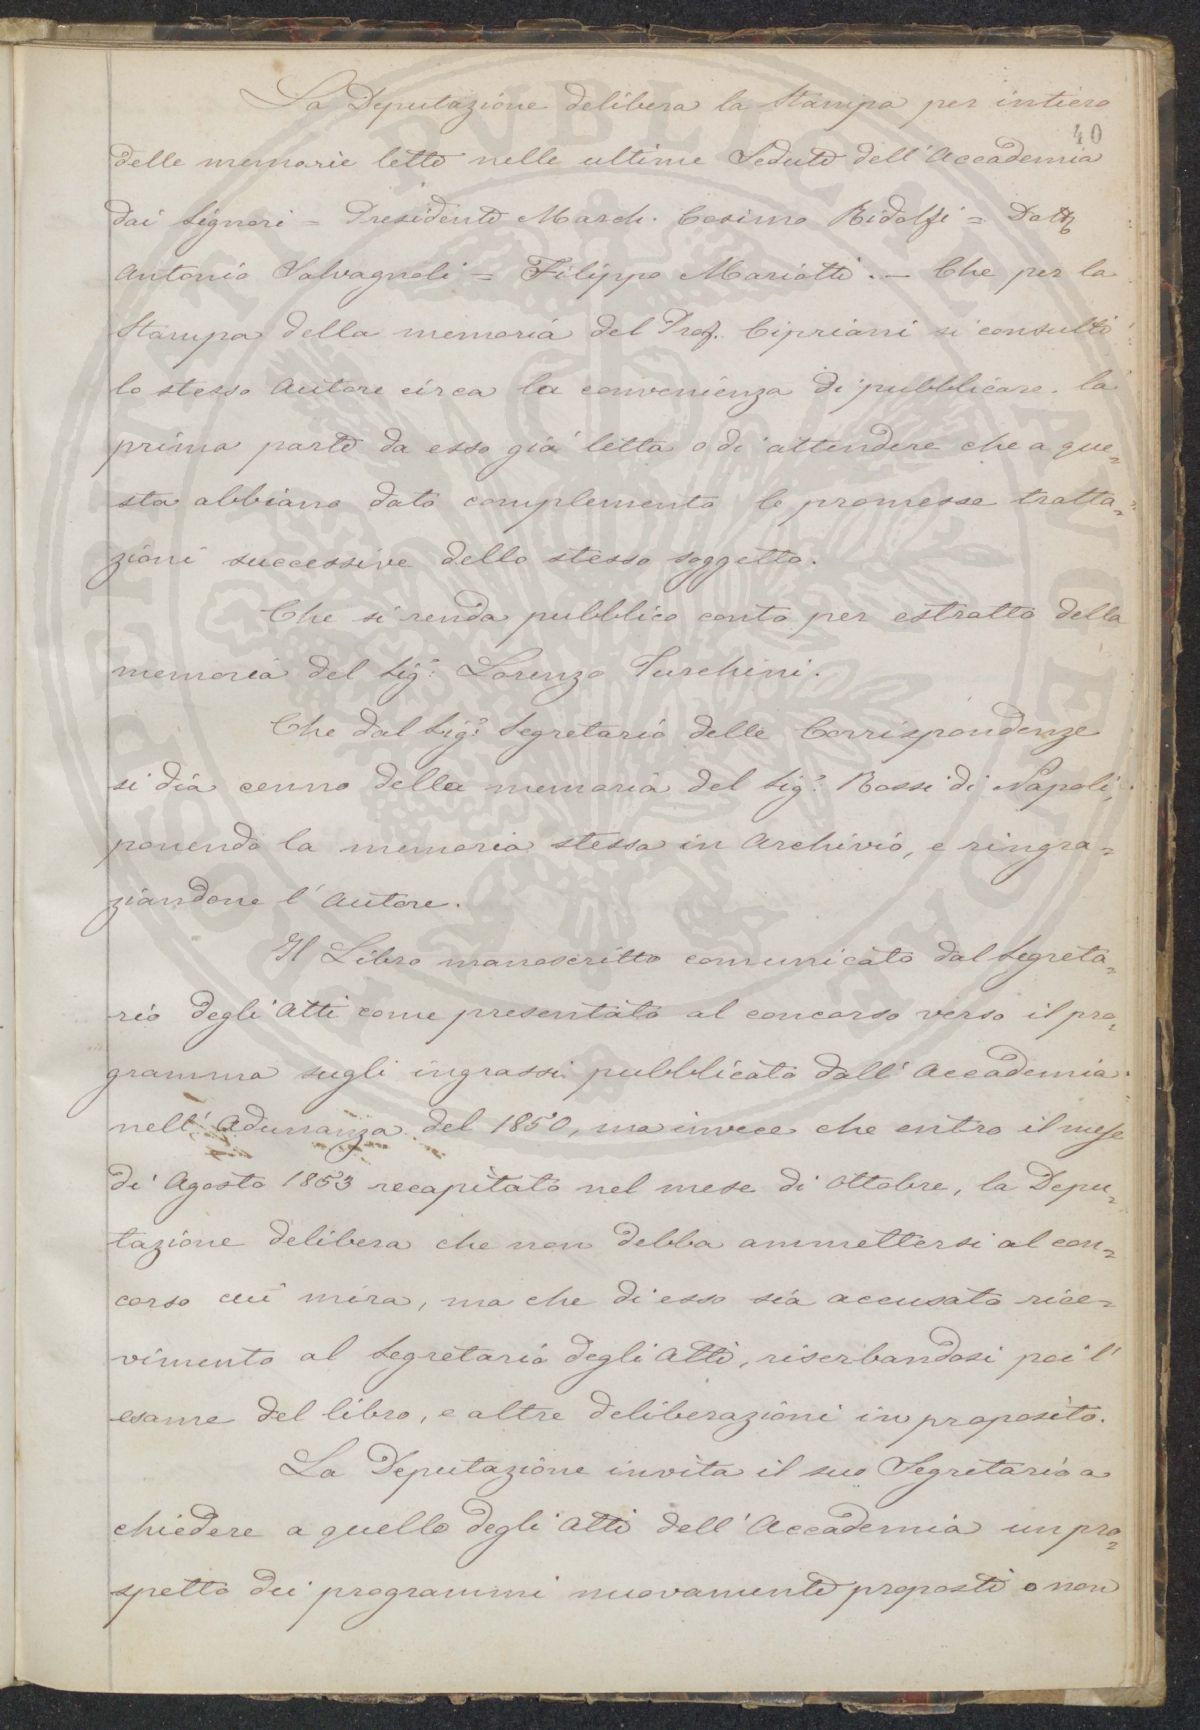 La Deputazione delibera la Stampa per intiero
40
delle memorie lette nelle ultime Sedute dell'Accademia
dai Signori = Presidente March. Cosimo Ridolfi = Dott.
Antonio Salvagnoli = Filippo Mariotti. — Che per la
Stampa della memoria del Prof. Cipriani si consulti
lo stesso Autore circa la convenienza di pubblicare la
prima parte da esso già letta o di attendere che a que=
sta abbiano dato complemento le promesse tratta=
zioni successive dello stesso soggetto.
Che si renda pubblico conto per estratto della
memoria del Sig.r Lorenzo Turchini.
Che dal Sig.r Segretario delle Corrispondenze
si dia cenno della memoria del Sig.r Rossi di Napoli,
ponendo la memoria stessa in Archivio, e ringra=
ziandone l'Autore.
Il Libro manoscritto comunicato dal Segreta=
rio degli Atti come presentato al concorso verso il pro=
gramma sugli ingrassi pubblicato dall'Accademia
nell'Adunanza del 1850, ma invece che entro il mese
di Agosto 1853 recapitato nel mese di Ottobre, la Depu=
tazione delibera che non debba ammettersi al con=
corso cui mira, ma che di esso sia accusato rice=
vimento al Segretario degli Atti, riserbandosi poi l'
esame del libro, e altre deliberazioni in proposito.
La Deputazione invita il suo Segretario a
chiedere a quello degli Atti dell'Accademia un pro=
spetto dei programmi nuovamente proposti o non